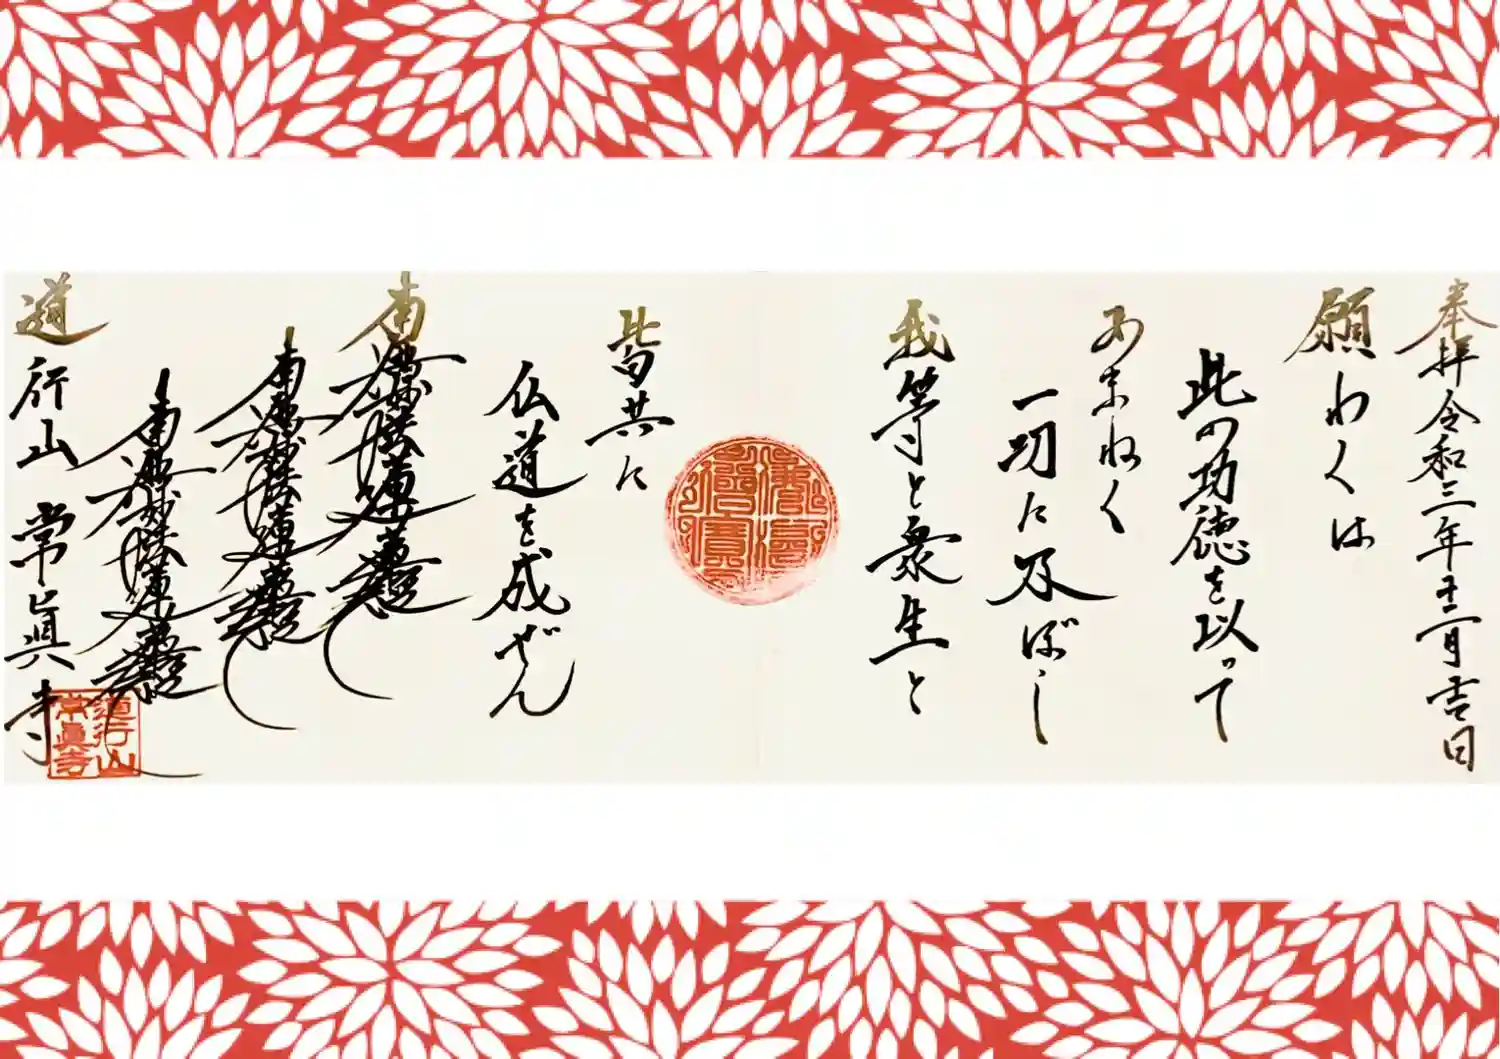 奉拝 令和三年十二月吉日
願わくは
此の功徳を以って
あまねく
一切に及ぼし
我等と衆生と
皆共に
仏道を成ぜん
南無妙法蓮華経
南無妙法蓮華経
南無妙法蓮華経
道行山 常眞寺
道行山
常眞寺